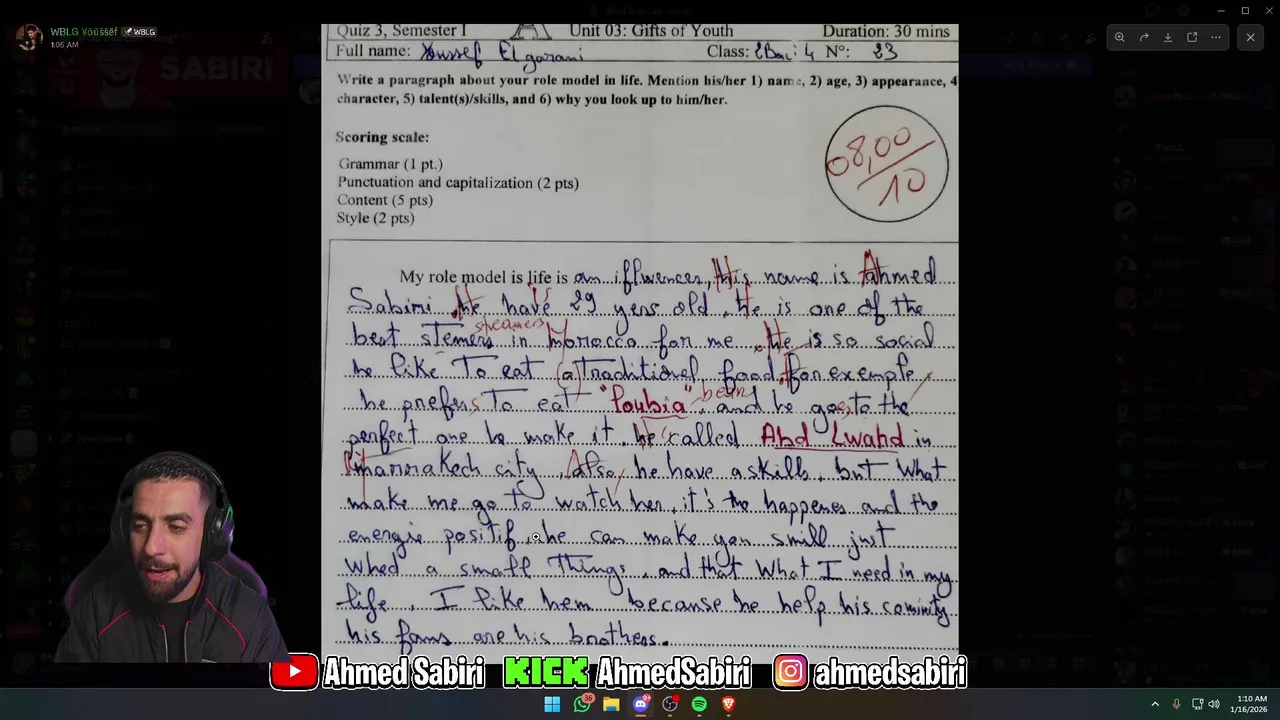 WBLG Yôussëf WBLG
1:05 AM
SABIRI
Quiz 3, Semester I Unit 03: Gifts of Youth Duration: 30 mins
Full name: Youssef Elgarani Class: 2Bac: 4 N°: 23
Write a paragraph about your role model in life. Mention his/her 1) name, 2) age, 3) appearance, 4
character, 5) talent(s)/skills, and 6) why you look up to him/her.
Scoring scale:
Grammar (1 pt.)
Punctuation and capitalization (2 pts)
Content (5 pts)
Style (2 pts)
08,00/10
My role model is life is an iffluencer, His name is Ahmed
Sabiri. He have 29 yers old. He is one of the
streamers
best stemers in Morocco for me. He is so social
he like To eat (a) Traditional food. For exemple
he prefers To eat "loubia" bean, and he goes to the
perfect one ho make it. he called Abd Lwahd in
Marrakech city. Also, he have a skills, but What
make me go to watch her, it's the happenes and the
energie positif, he can make you smill just
Whed a small Things, and that What I need in my
life. I like hem because he help his cominity
his fams are his brothers.
Ahmed Sabiri KICK AhmedSabiri ahmedsabiri
36
1:10 AM
1/16/2026